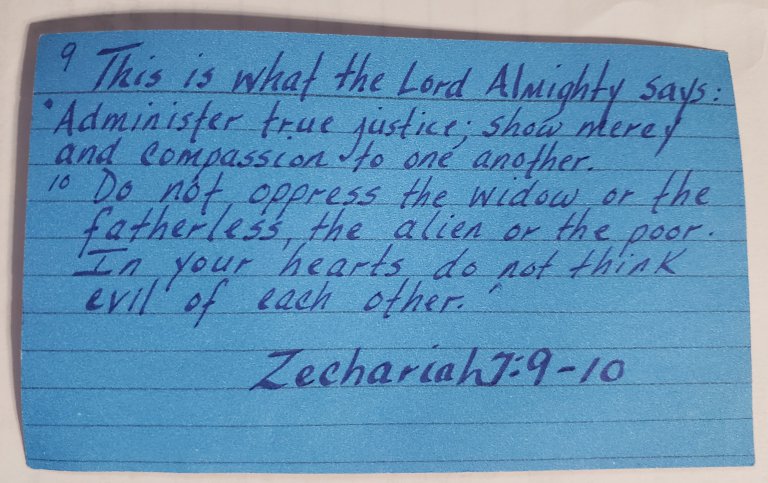 9 This is what the Lord Almighty says:
'Administer true justice; show mercy
and compassion to one another.
10 Do not oppress the widow or the
fatherless, the alien or the poor.
In your hearts do not think
evil of each other.'
Zechariah 7:9-10